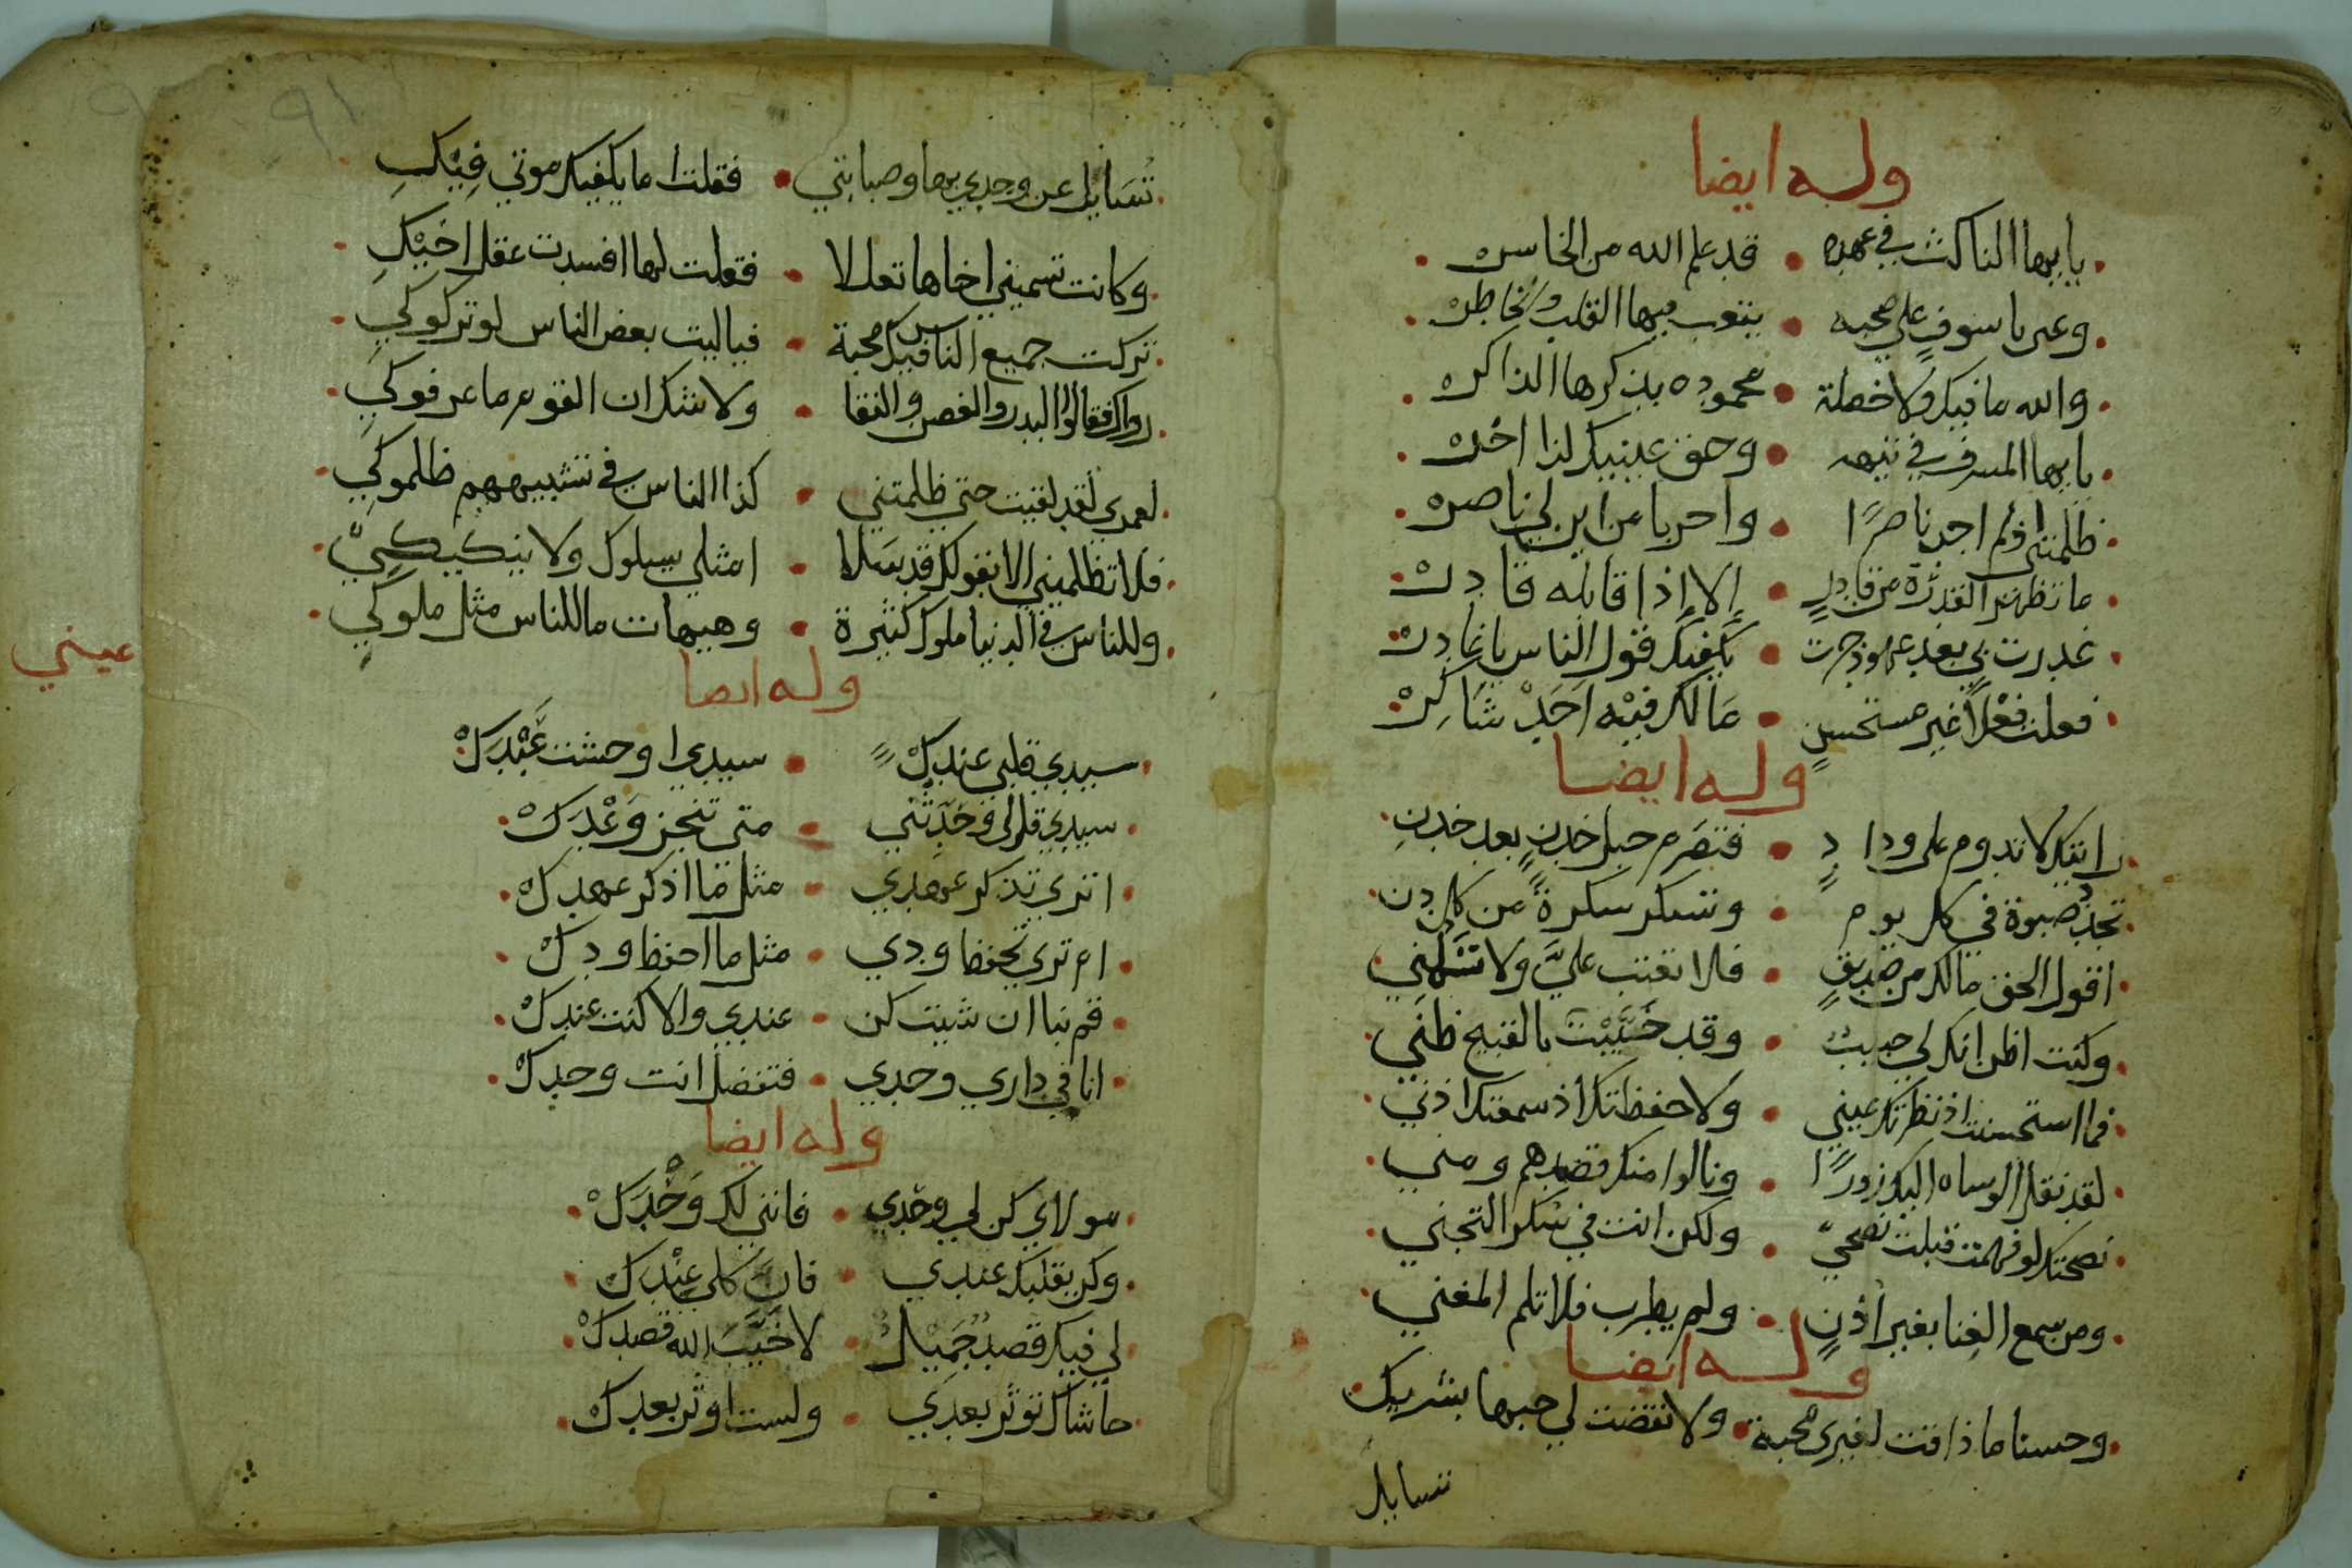 وله ايضا
يا ايها الناكث في عهده • قد علم الله من الخاسر
وعن يا سوف على صحبه • يتعب فيها القلب والخاطر
والله ما فيك ولا خصلة • محموده يذكرها الذاكر
يا ايها المسرف في تيهه • وحق عينيك لذا اخر
ظلمتني ولم اجد ناصرًا • واحربا من اين لي ناصر
ما تظهر القدرة من قادرٍ • إلا إذا قابله قادر
غدرت بي بعد عهود جرت • يكفيك قول الناس يا غادر
فعلت فعْلاً غير مستحسنٍ • مَا لك فيْه اَحَدْ شَاكِرْ
وله ايضا
رايتك لا تدوم على ودادٍ • فتصَرم حبل خدنٍ بعد خدنِ
تجدّد صبوة في كل يوم • وتسكر سكرةً من كل دن
اقول الحق مالك من صديقٍ • فلا تعتب عليَّ ولا تسَلْني
وكنت اظن انك لي حبيب • وقد خَيَّبْتَ بالقبيح ظني
فما استحسنت اذ نظرتك عيني • ولا حفظتك اذ سمعتك اذني
لقد نقل الوساه اليك زورًا • ونالوا منك قصدهم ومني
نصحتك لو فهمت قبلت نصحي • ولكن انت في سكر التجني
ومن سمع الغِنا بغير اُذنٍ • ولم يطرب فلا تلم المغني
وله ايضا
وحسنا ما ذاقت لغيري محبة • ولا نغصت لي حبها بشريك
تسايل
تُسَايل عن وجدي بها وصبابتي • فقلت اما يكفيك موتي فِيْكِ
وكانت تسميني اخاها تعللا • فقلت لها افسدت عقل اخَيْكِ
تركت جميع الناس فيك محبة • فياليت بعض الناس لو تركوكي
رواك فقالوا البدر والغصن والنقا • ولا شك ان القوم ما عرفوكي
لعمري لقد لقيت حتي ظلمتني • كذا الناس في تشبيههم ظلموكي
فلا تظلميني الا بقولك قد سَلا • امثلي سلوك ولا
وللناس في الدنيا ملوك كثيرة • وهيهات ما للناس مثل ملوكي
عيني
وله ايضا
سيدي قلبي عندك • سيدي اوحشت عَبْدَكْ
سيدي قل لي وحَدِّثني • متى تنجز وَعْدَكْ
اتري تذكر عهدي • مثل ما اذكر عهدك
ام تري تحفظ ودي • مثل ما احفظ ودك
قم بنا ان شيت كن • عندي والا كنت عندك
انا في داري وحدي • فتفضل انت وحدك
وله ايضا
مولاي كن لي وحْدي • فانني لك وَحْدَكْ
وكن بقلبك عندي • فانَ كلي عِنْدك
لي فيك قصد جَمِيْل • لا خَيَّبَ الله قصدك
حاشاك توثر بعدي • ولست اوثر بعدك